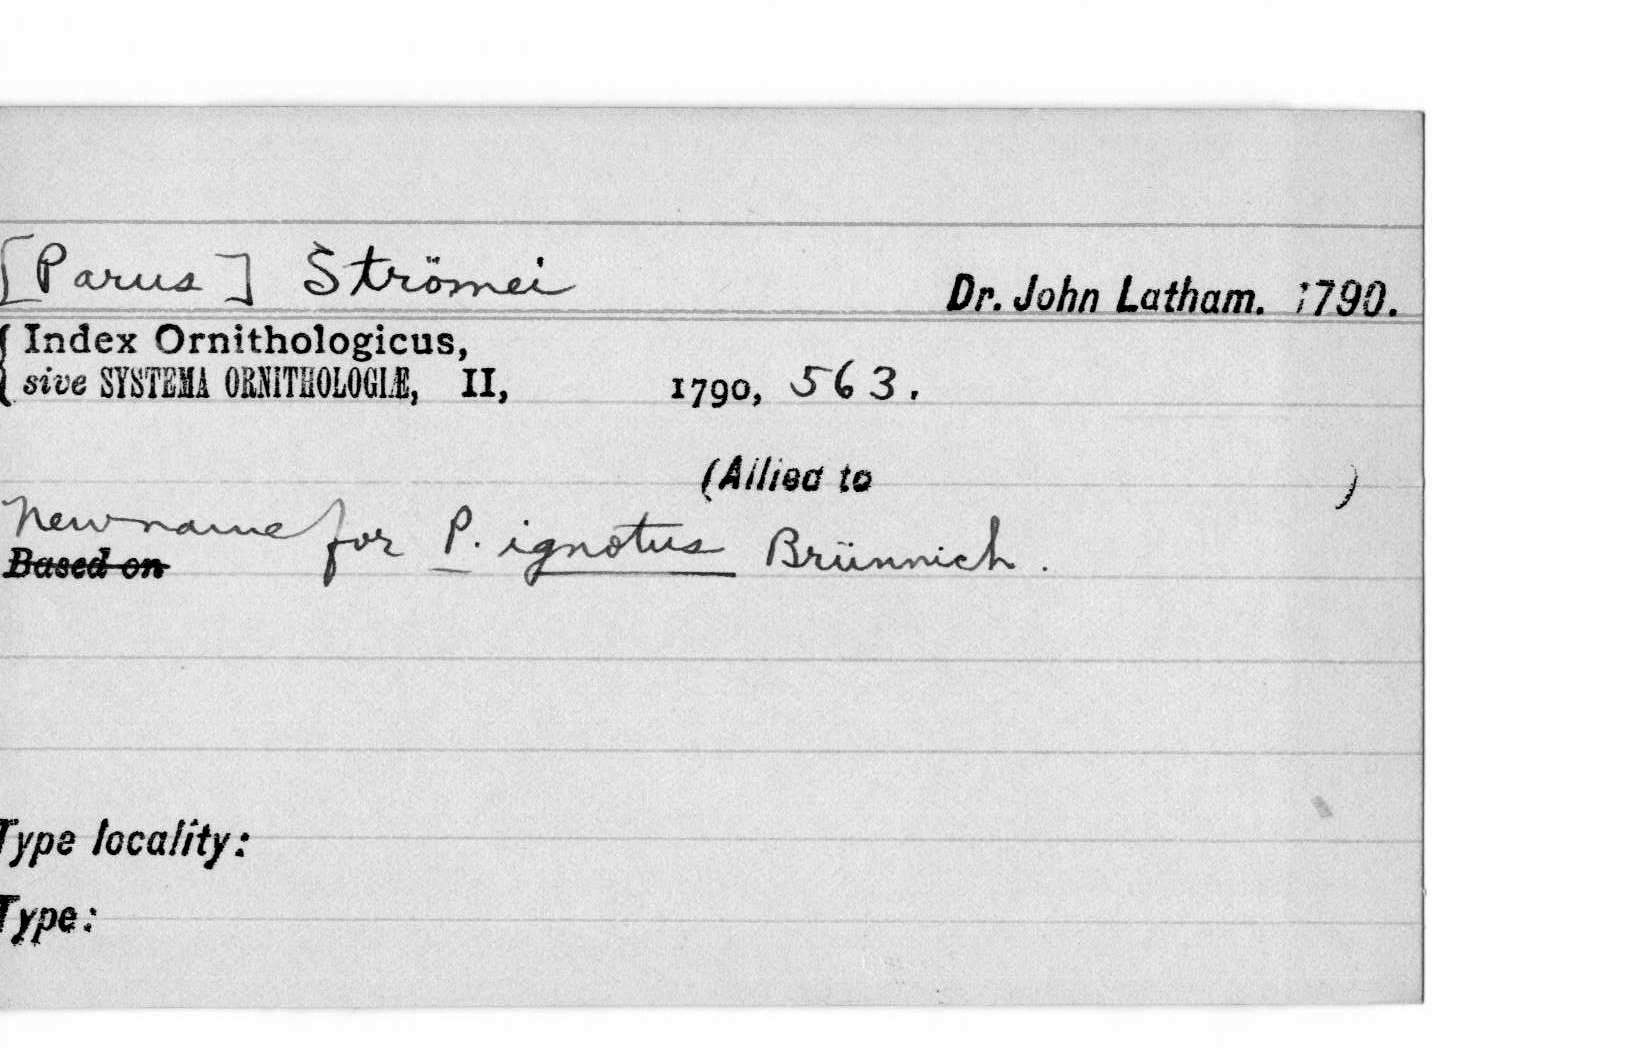 [Parus] Strömei Dr. John Latham. 1790.
Index Ornithologicus,
sive SYSTEMA ORNITHOLOGIÆ, II, 1790, 563.
(Allied to )
New name for P. ignotus Brünnich.
Based on
Type locality:
Type: